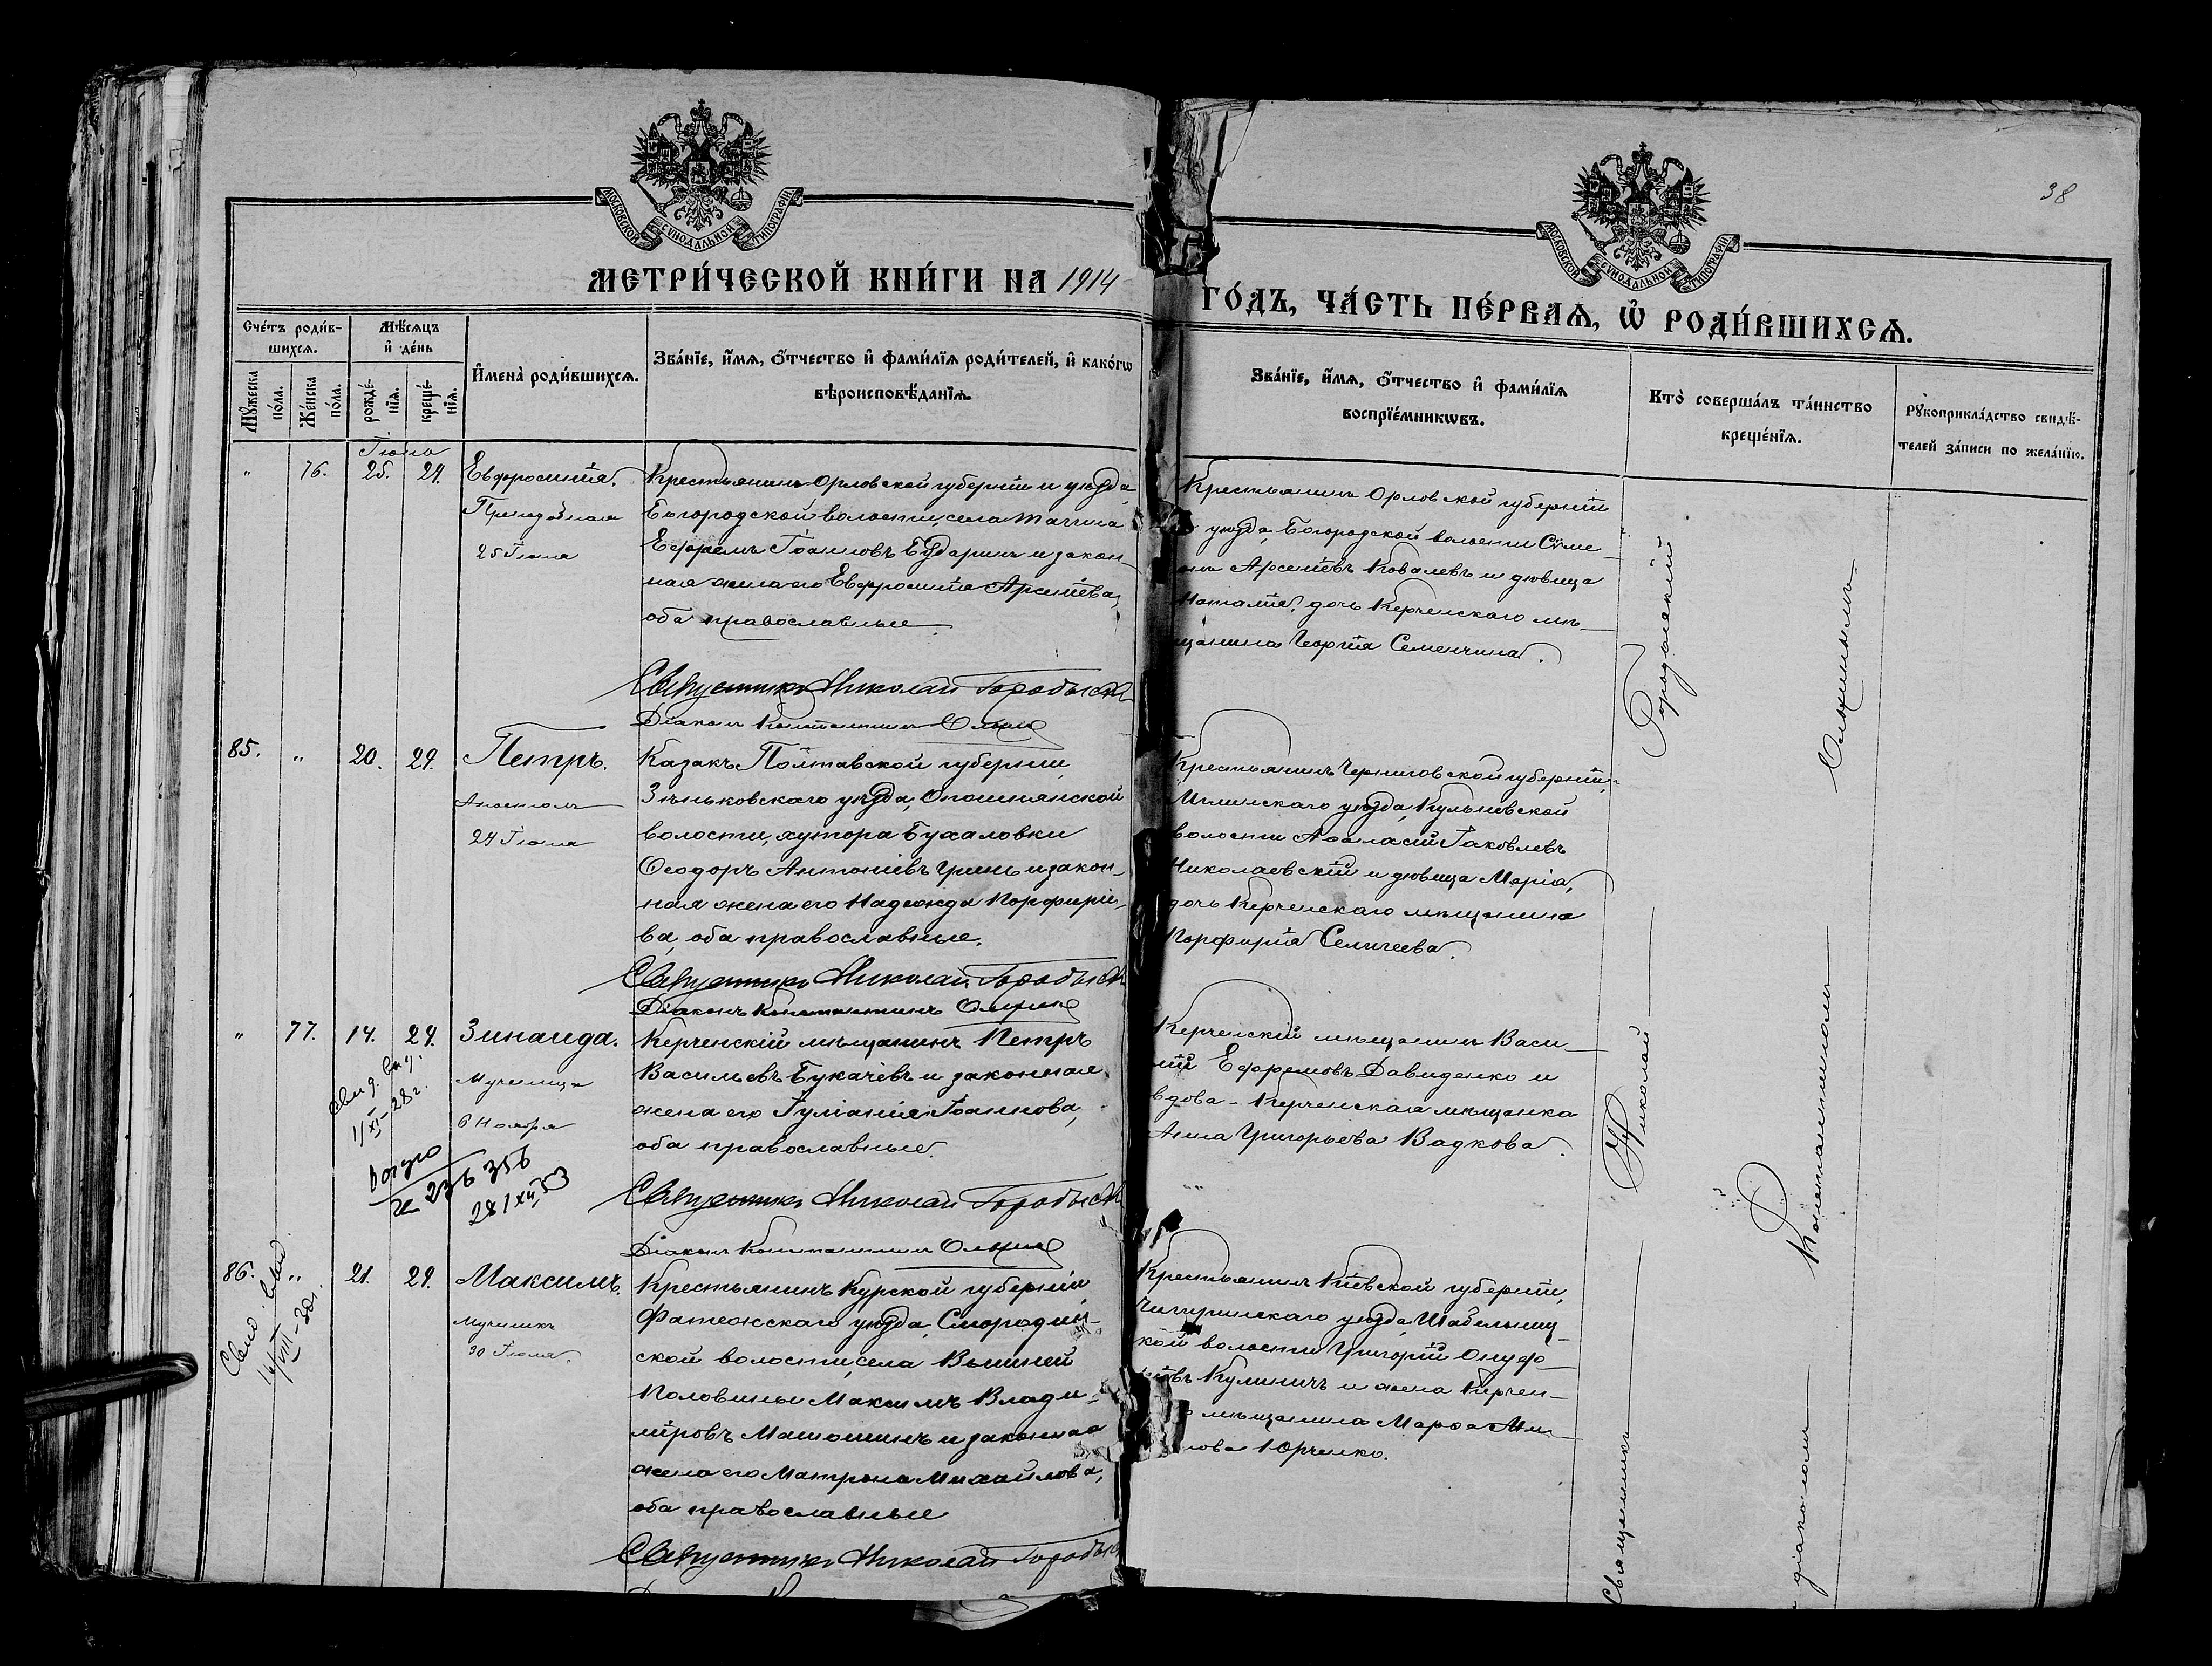 38
МОСКОВСКОЙ СУНОДАЛЬНОЙ ТИПОГРАФІИ
МОСКОВСКОЙ СУНОДАЛЬНОЙ ТИПОГРАФІИ
МЕТРИ́ЧЕСКОЙ КНИ́ГИ НА 1914
ГО́ДЪ, ЧА́СТЬ ПЕ́РВАѦ, Ѡ҆ РОДИ́ВШИХСѦ.
Сче́тъ роди́в-
шихсѧ.
Мꙋ́жеска по́ла.
Же́нска по́ла.
Мѣ́сѧцъ
и҆ де́нь
рожде́-
нїѧ.
креще́-
нїѧ.
И҆мена̀ роди́вшихсѧ.
Зва́нїе, и҆́мѧ, ѻ҆́тчество и҆ фами́лїѧ роди́телей, и҆ како́гѡ
вѣроисповѣ́данїѧ.
Зва́нїе, и҆́мѧ, ѻ҆́тчество и҆ фами́лїѧ
воспрїе́мникѡвъ.
Кто̀ соверша́лъ та́инство
креще́нїѧ.
Рꙋкоприкла́дство свидѣ́-
телей за́писи по жела́нїю.
Іюль
" 76. 25. 29. Евфросинія.
Преподобная
25 Іюля
Крестьянинъ Орловской губерніи и уѣзда
Богородской волости, села
Ефремъ Іоанновъ и закон-
ная жена его Евфросинія Арсеніева,
оба православные.
Священникъ Николай Городыскій
Діаконъ Константинъ
Крестьянинъ Орловской губерніи
уѣзда, Богородской волости Симе-
онъ Арсеніевъ Ковалевъ и дѣвица
Наталія, дочь Керченскаго мѣ-
щанина Георгія Семенчина.
85. " 20. 29. Петръ.
Апостолъ
29 Іюня
Казакъ Полтавской губерніи,
Зѣньковскаго уѣзда, Опошнянской
волости, хутора Бухаловки
Ѳеодоръ Антоніевъ Гринь и закон-
ная жена его Надежда Порфиріе-
ва, оба православные.
Священникъ Николай Городыскій
Діаконъ Константинъ
Крестьянинъ Черниговской губерніи,
Мглинскаго уѣзда, Кульневской
волости Аѳанасій Іаковлевъ
Николаевскій и дѣвица Марія,
дочь Керченскаго мѣщанина
Порфирія Селичеева.
" 77. 14. 29. Зинаида.
Мученица
6 Ноября
1/XI-28г.
28/XII 53
Керченскій мѣщанинъ Петръ
Васильевъ Букачевъ и законная
жена его Іуліанія Іоаннова,
оба православные.
Священникъ Николай Городыскій
Діаконъ Константинъ
Керченскій мѣщанинъ Васи-
лій Ефремовъ Давиденко и
вдова - Керченская мѣщанка
Анна Григорьева Вадкова.
86. " 21. 29. Максимъ.
Мученикъ
30 Іюля.
Крестьянинъ Курской губерніи,
Фатежскаго уѣзда, Смородин-
ской волости, села Вышней
Половинки Максимъ Влади-
міровъ Матюшинъ и законная
жена его Матрона Михайлова,
оба православные
Священникъ Николай
Крестьянинъ Кіевской губерніи,
Чигиринскаго уѣзда, Шабельниц-
кой волости Григорій Онуфр-
іевъ Кулиничъ и жена Керчен-
мѣщанина Марѳа
Юрченко.
Священникъ Николай Городыскій
діакономъ Константиномъ